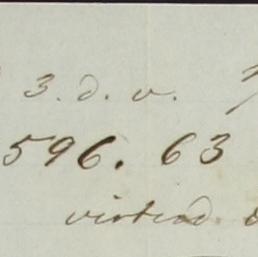 3. d. v.
596. 63
virtud